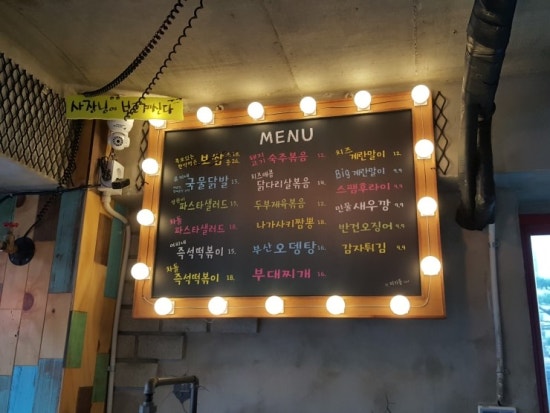 사장님이 보고계신다
MENU
보쌈
국물닭발 17.
파스타샐러드 17.
차돌
파스타샐러드 19.
즉석떡볶이 15.
차돌
즉석떡볶이 18.
숙주볶음 12.
치즈매콤
닭다리살볶음 17.
두부제육볶음 17.
나가사키짬뽕 18.
부산오뎅탕 16.
부대찌개 16.
치즈
계란말이 12.
Big 계란말이 9.9
스팸후라이 9.9
민물새우깡 9.9
반건오징어 9.9
감자튀김 9.9